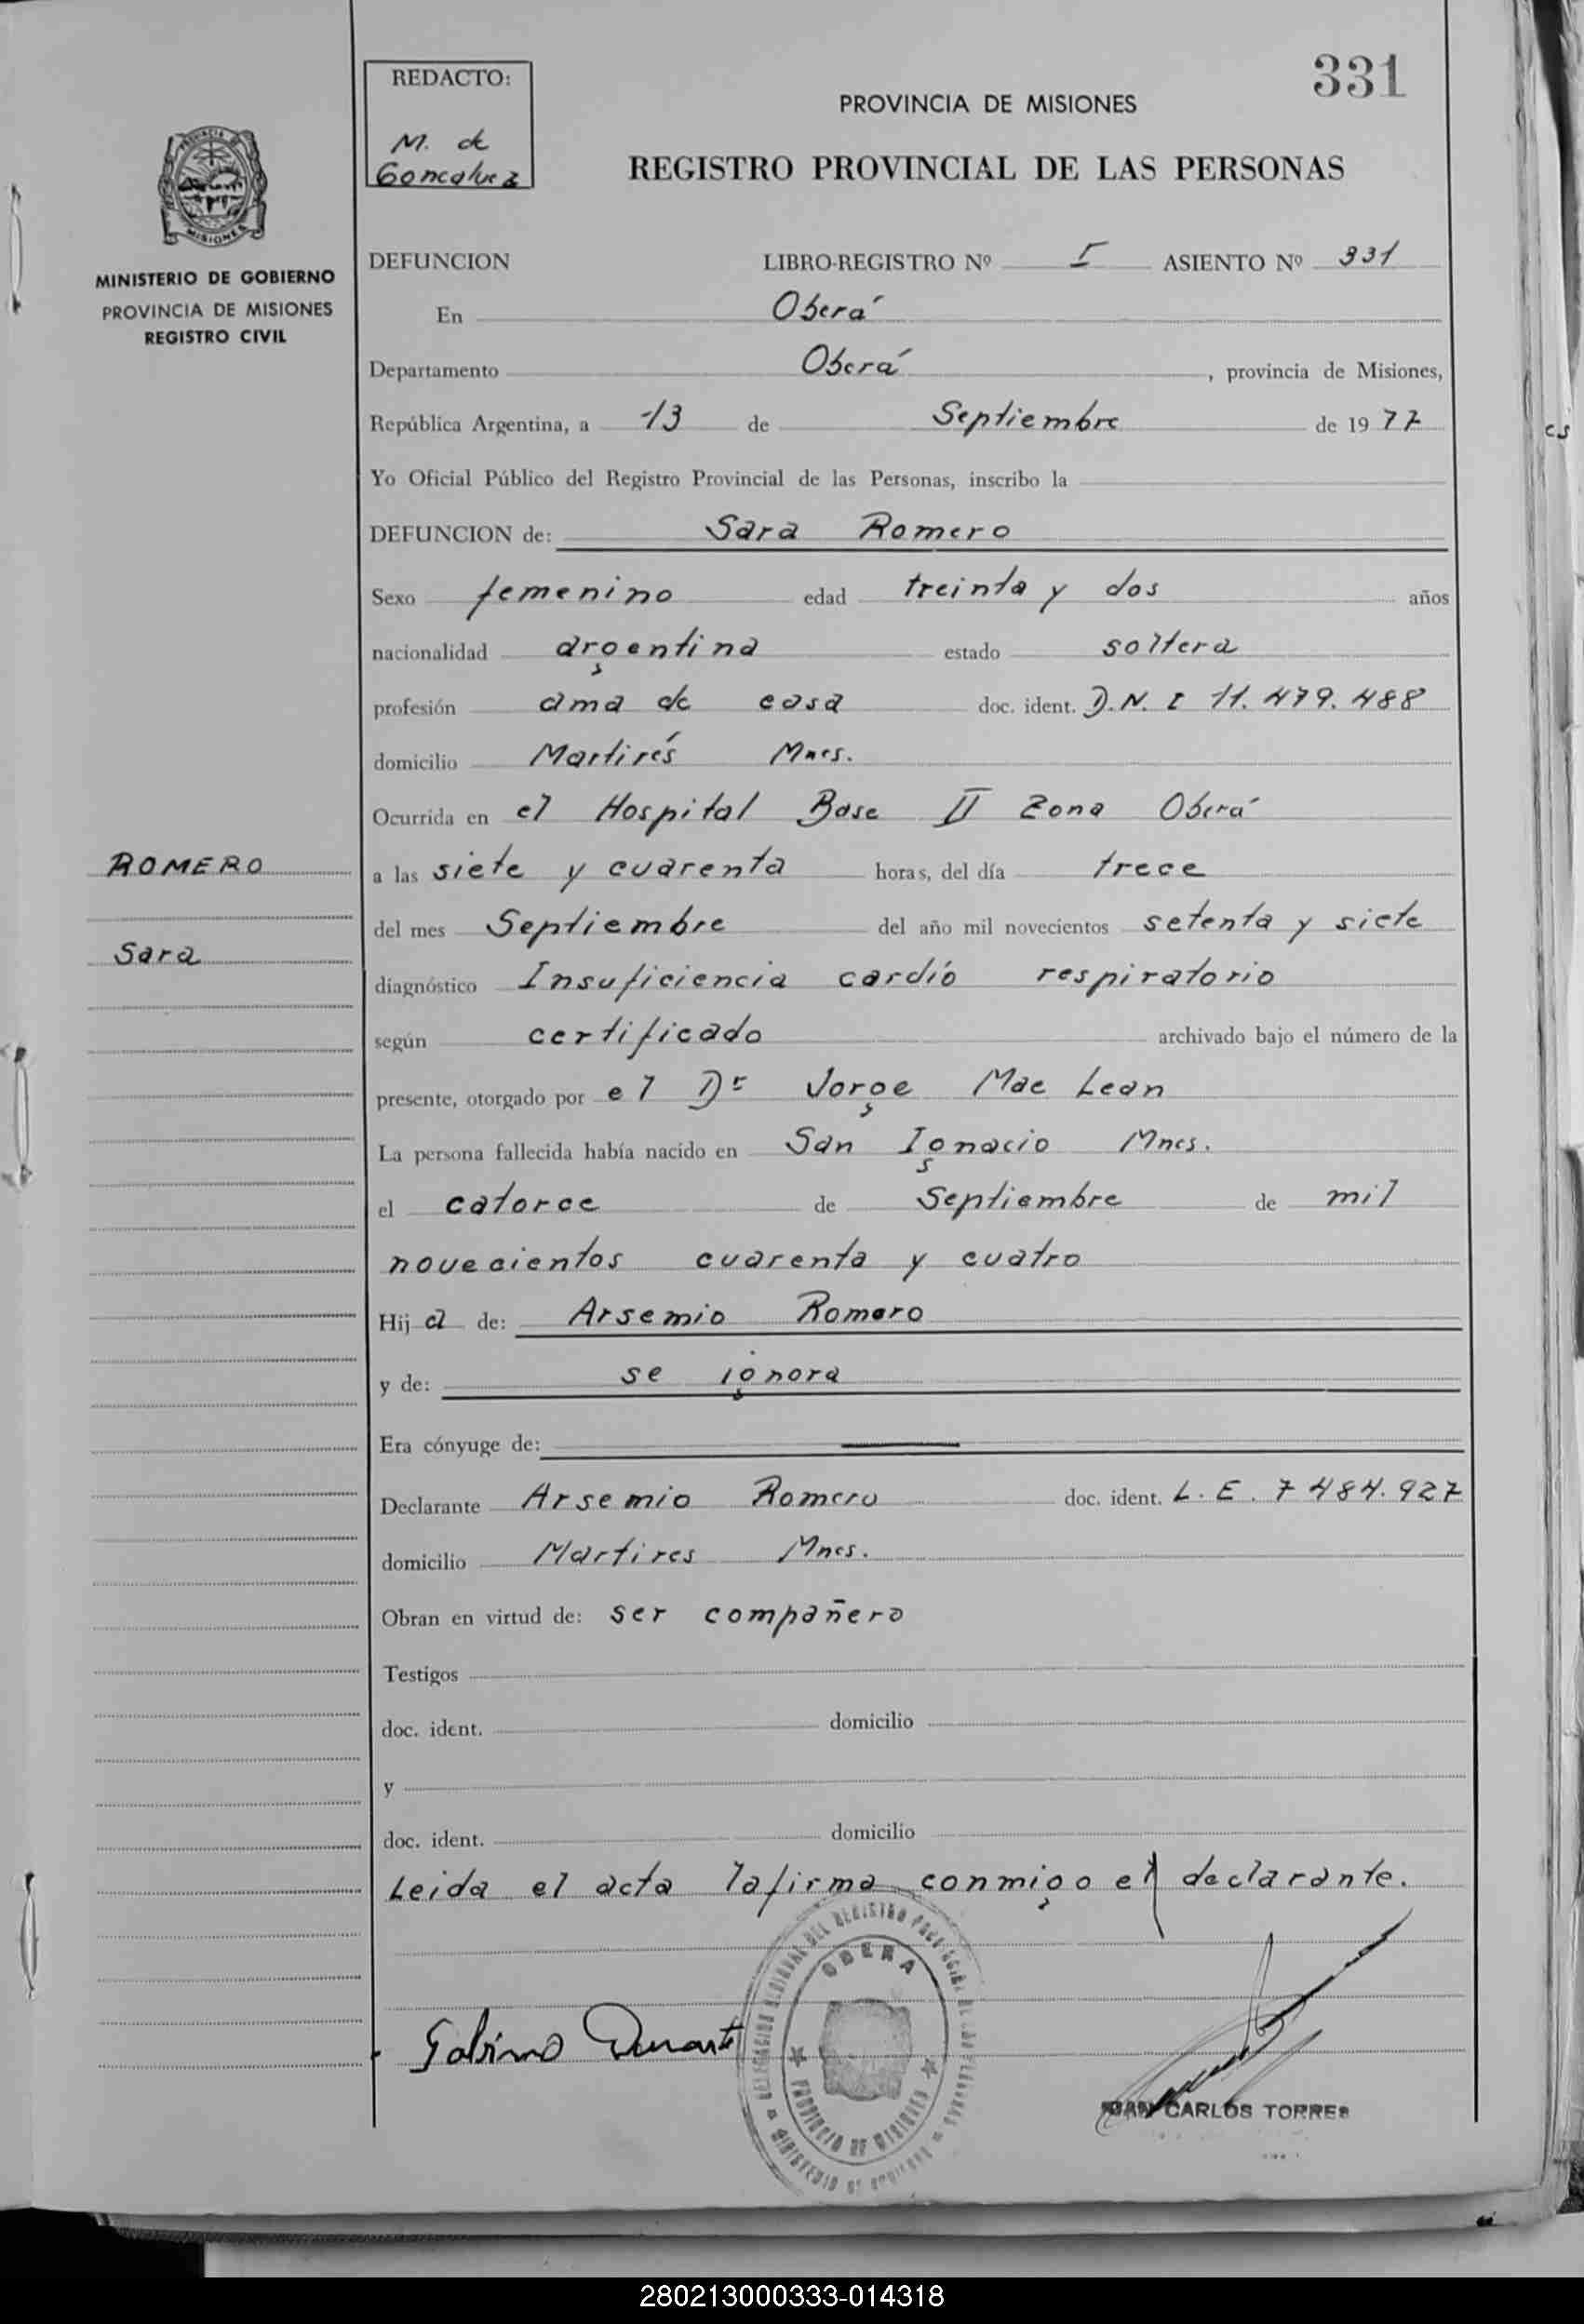 331
REDACTO:
M. de
Goncalvez
PROVINCIA DE MISIONES
REGISTRO PROVINCIAL DE LAS PERSONAS
MISIONES
MINISTERIO DE GOBIERNO
PROVINCIA DE MISIONES
REGISTRO CIVIL
DEFUNCION LIBRO-REGISTRO Nº I ASIENTO Nº 331
En Oberá
Departamento Oberá, provincia de Misiones,
República Argentina, a 13 de Septiembre de 1977
Yo Oficial Público del Registro Provincial de las Personas, inscribo la
DEFUNCION de: Sara Romero
Sexo femenino edad treinta y dos años
nacionalidad argentina estado soltera
profesión ama de casa doc. ident. D.N.I 11.479.488
domicilio Martirés Mnes.
Ocurrida en el Hospital Base II Zona Oberá
ROMERO
Sara
a las siete y cuarenta horas, del día trece
del mes Septiembre del año mil novecientos setenta y siete
diagnóstico Insuficiencia cardío respiratorio
según certificado archivado bajo el número de la
presente, otorgado por el Dr Jorge Mac Lean
La persona fallecida había nacido en San Ignacio Mnes.
el catorce de Septiembre de mil
novecientos cuarenta y cuatro
Hija de: Arsemio Romero
y de: se ignora
Era cónyuge de: —
Declarante Arsemio Romero doc. ident. L.E. 7484.927
domicilio Martires Mnes.
Obran en virtud de: ser compañero
Testigos
doc. ident. domicilio
y
doc. ident. domicilio
Leida el acta la firma conmigo el declarante.
OBERA
PROVINCIA DE MISIONES
Gabino Duarte
JUAN CARLOS TORRES
280213000333-014318